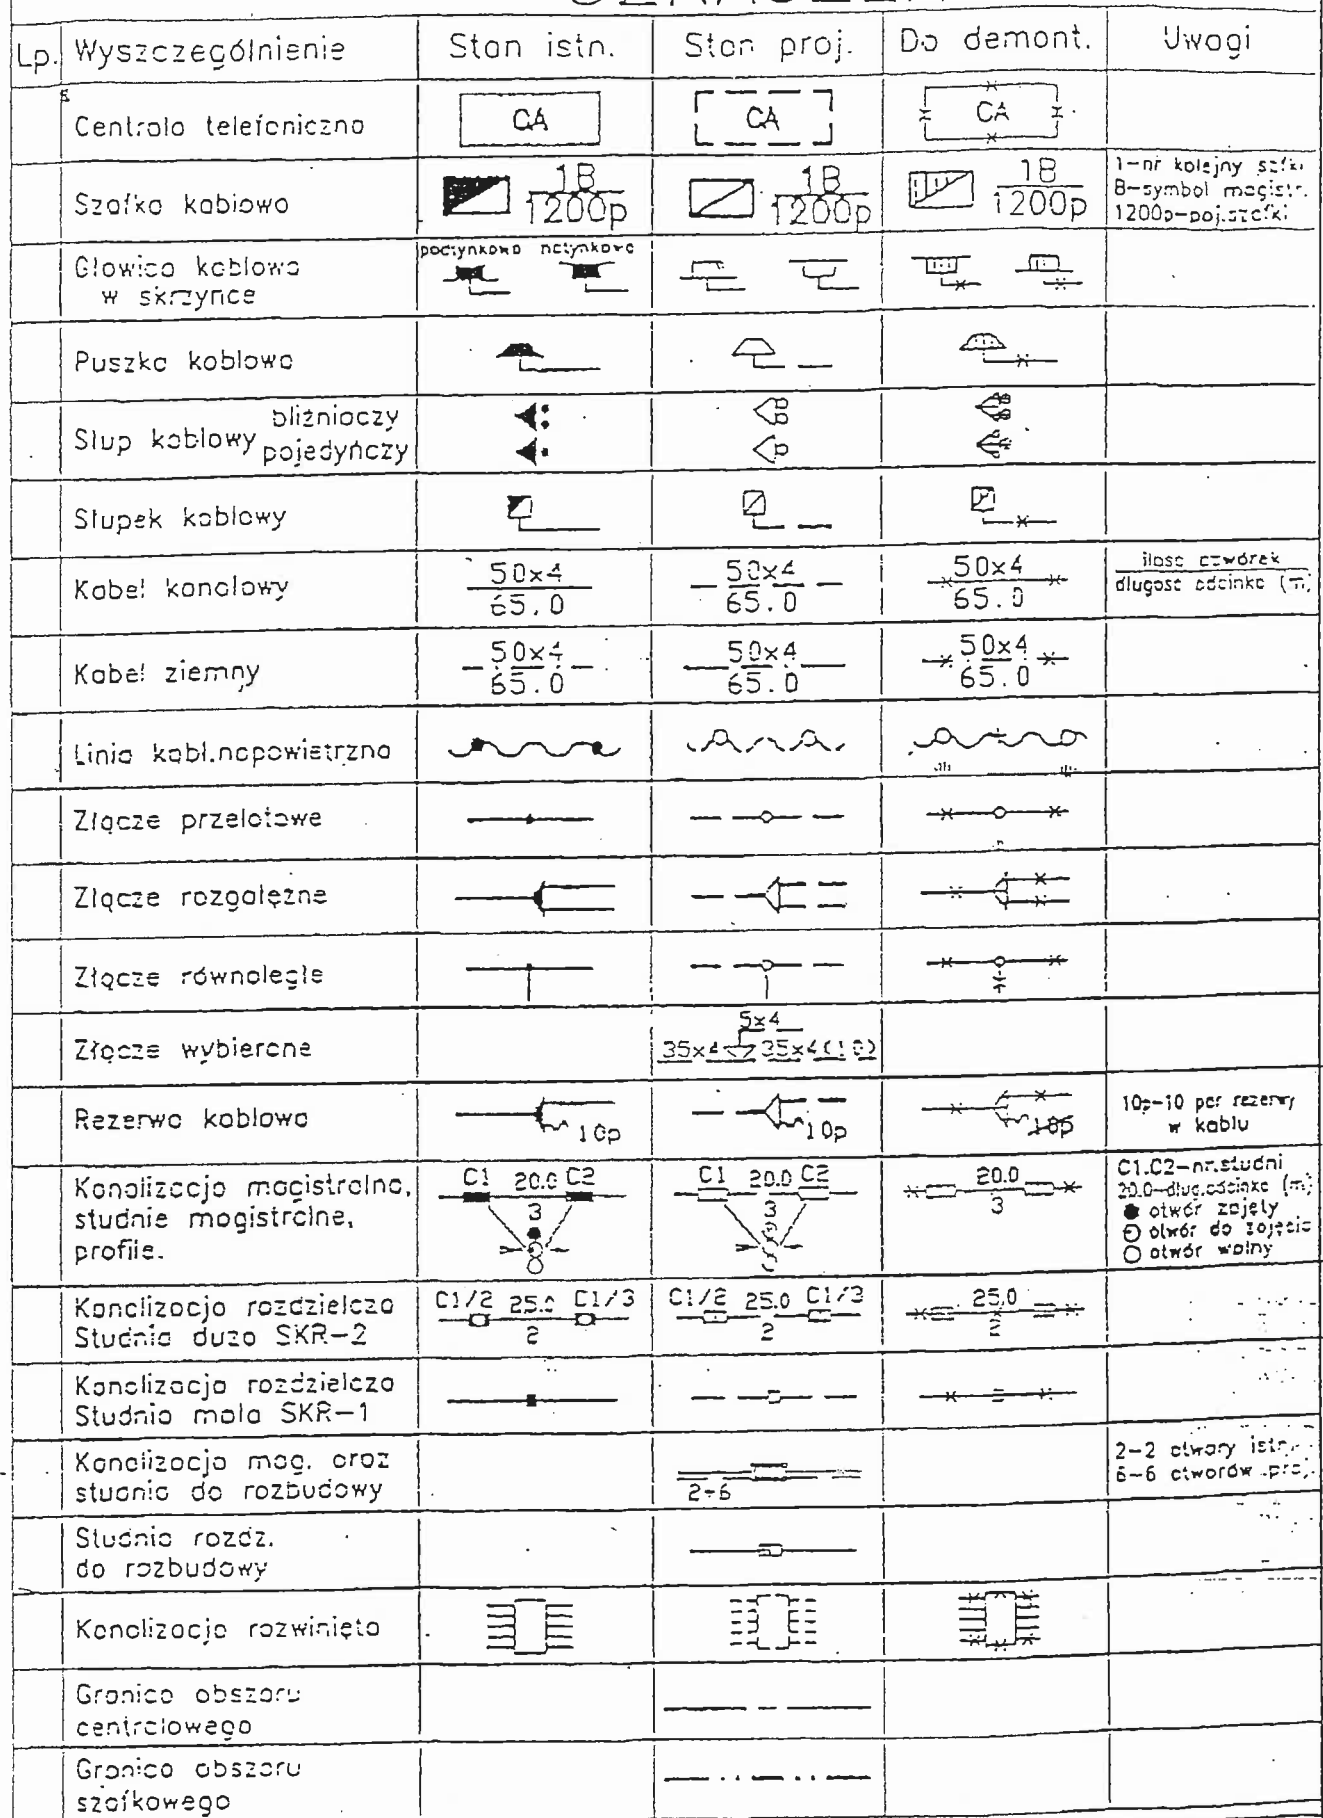 Lp. Wyszczególnienie Stan istn. Stan proj. Do demont. Uwagi
Centrala telefoniczna CA CA CA
Szafka kablowa 1B 1200p 1B 1200p 1B 1200p
1-nr kolejny szfki
B-symbol magistr.
1200p-poj.szafki
podtynkowa natynkowa
Głowica kablowa
w skrzynce
Puszka kablowa
Słup kablowy bliźniaczy
pojedyńczy
Słupek kablowy
Kabel kanałowy 50x4 65.0 50x4 65.0 50x4 65.0
ilość czwórek
długość odcinka (m)
Kabel ziemny 50x4 65.0 50x4 65.0 50x4 65.0
Linia kabl.napowietrzna
Złącze przelotowe
Złącze rozgałęźne
Złącze równoległe
Złącze wybierane 5x4
35x4 35x4(10)
Rezerwa kablowa 10p 10p 10p
10p-10 par rezerwy
w kablu
Kanalizacja magistralna,
studnie magistralne,
profile.
C1 20.0 C2
3
C1 20.0 C2
3
20.0
3
C1.C2-nr.studni
20.0-dług.odcinka (m)
otwór zajęty
otwór do zajęcia
otwór wolny
Kanalizacja rozdzielcza
Studnia duża SKR-2
C1/2 25.0 C1/3
2
C1/2 25.0 C1/3
2
25.0
2
Kanalizacja rozdzielcza
Studnia mała SKR-1
Kanalizacja mag. oraz
studnia do rozbudowy
2+6
2-2 otwory istn.
6-6 otworów proj.
Studnia rozdz.
do rozbudowy
Kanalizacja rozwinięta
Granica obszaru
centralowego
Granica obszaru
szafkowego